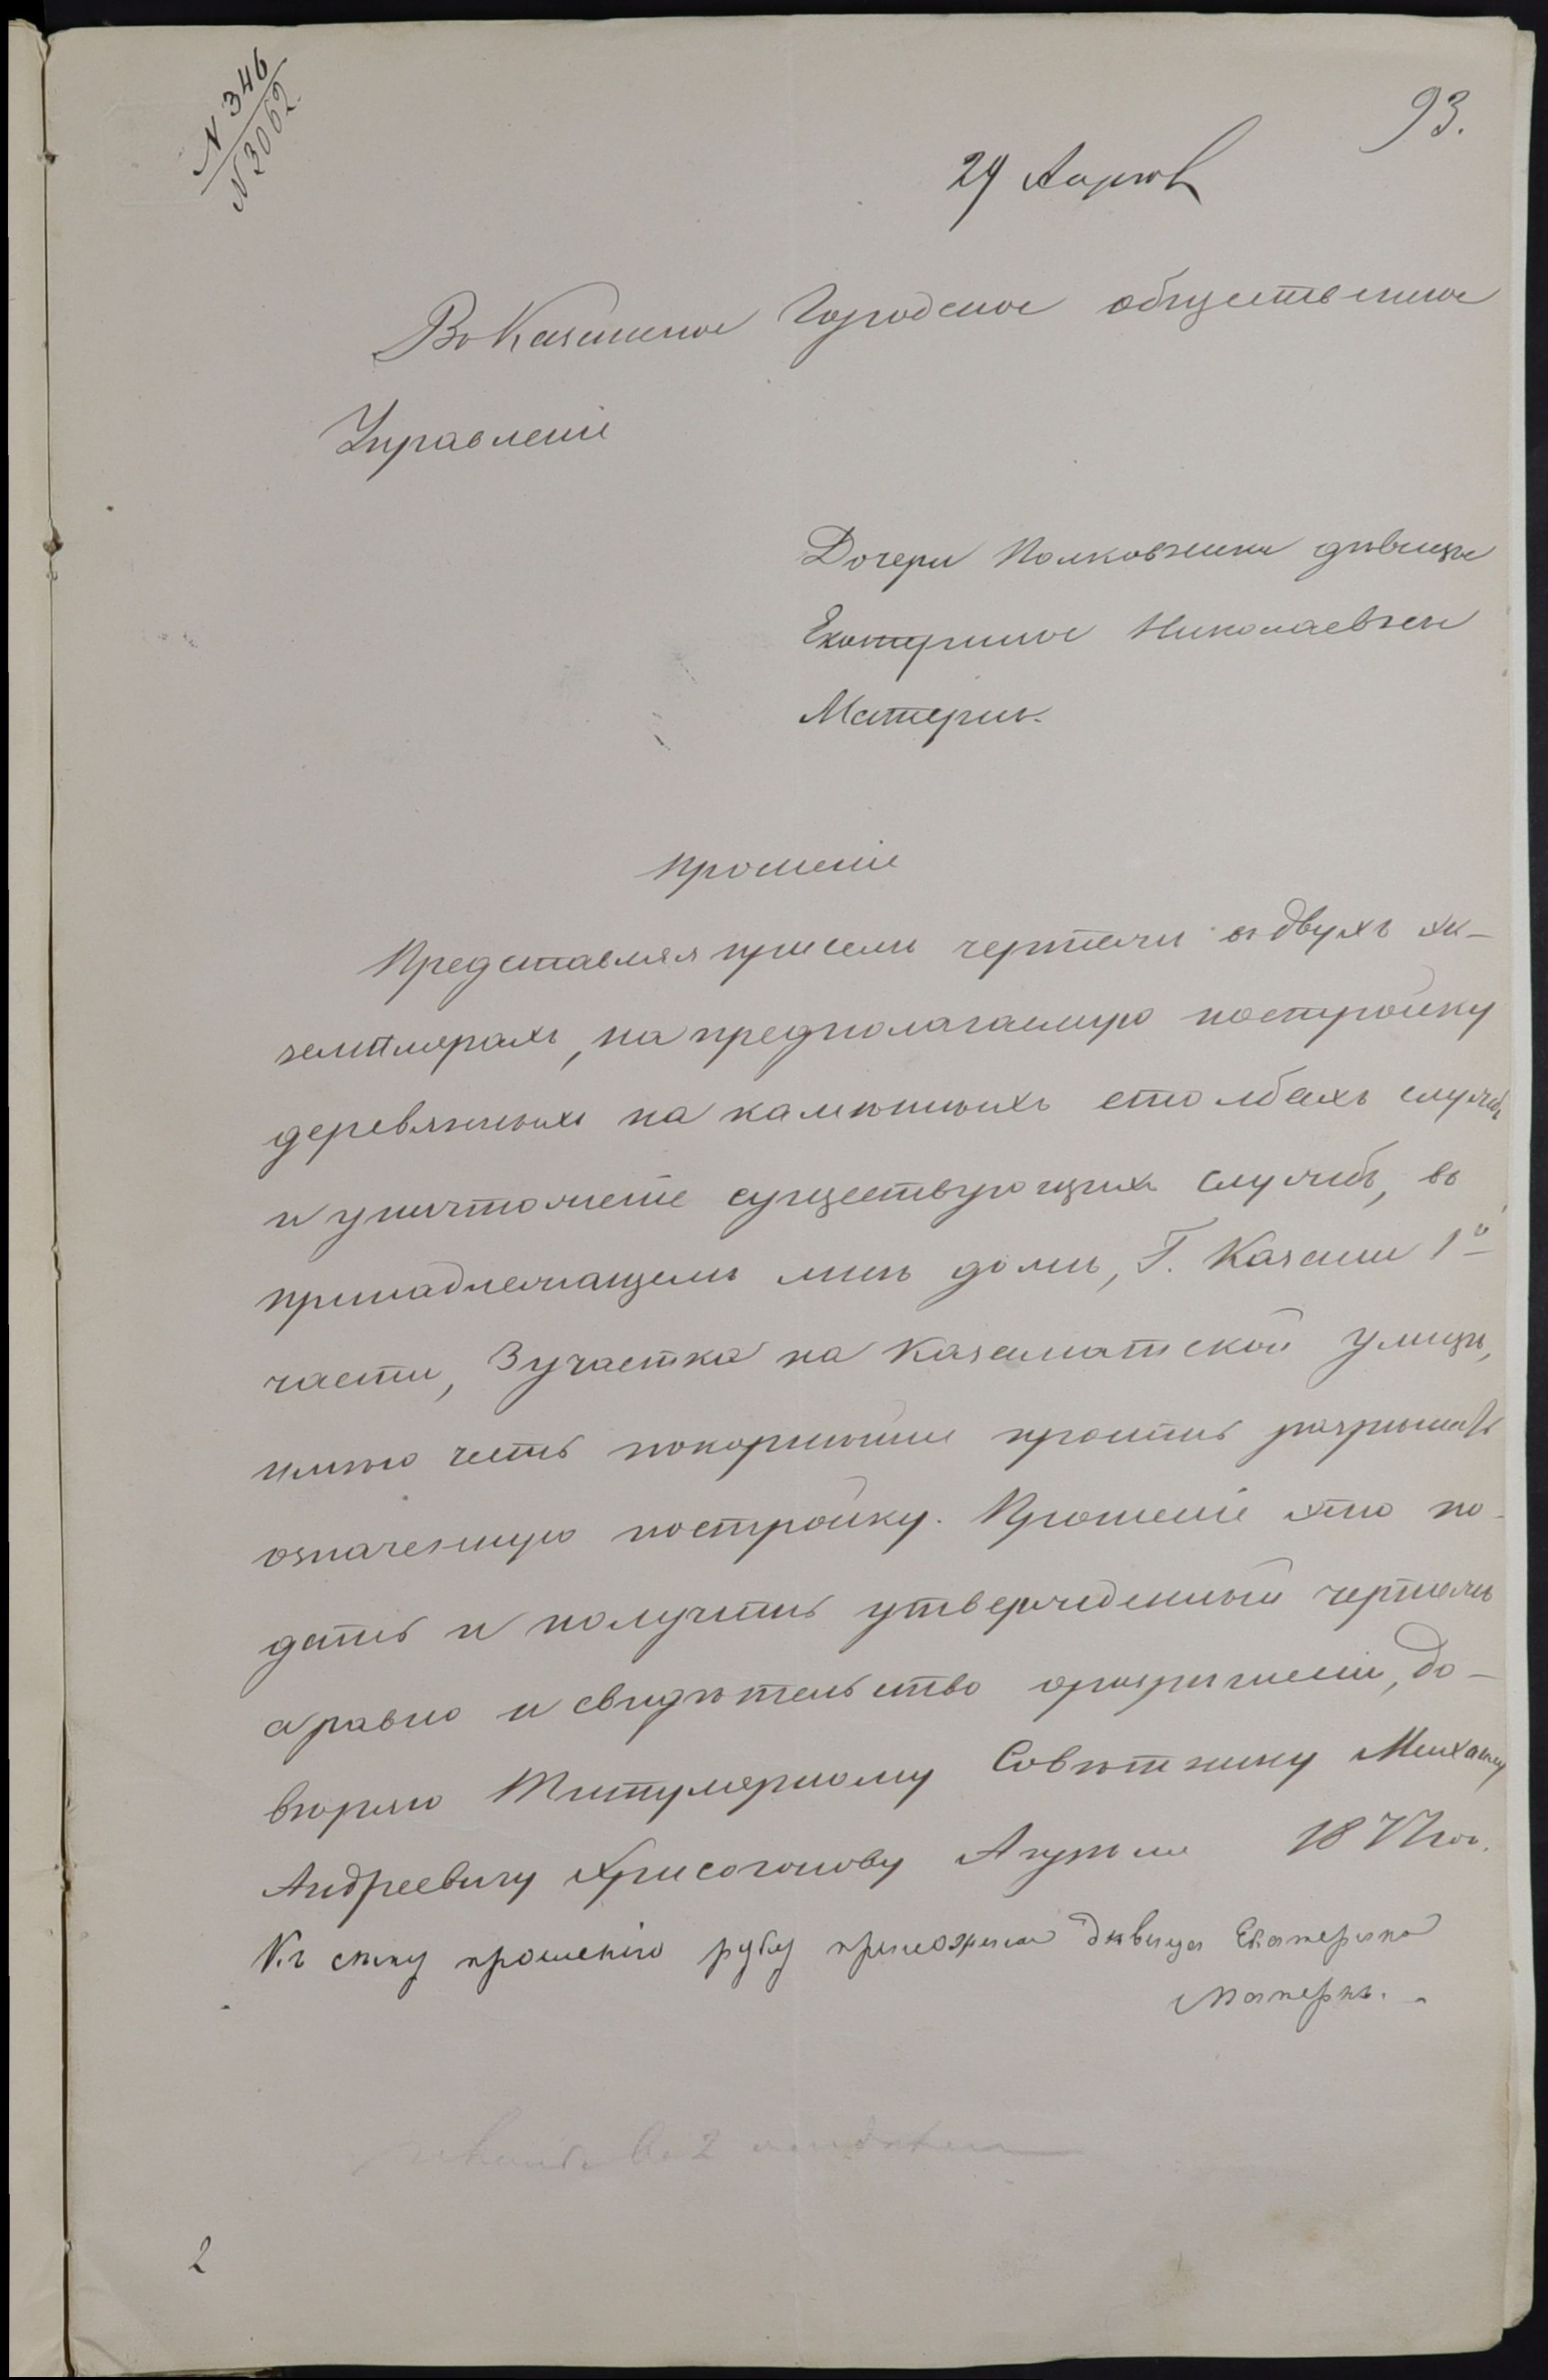 N 346
N 3062
93.
29 Апрѣл
Въ Казанское Городское общественное
Управленіе
Дочери Полковника дѣвицы
Екатерины Николаевны
Матернъ.
Прошеніе
Представляя при семъ чертежи въ двухъ эк-
земплярахъ, на предполагаемую постройку
деревянныхъ на каменныхъ столбахъ службъ
и уничтоженіе существующихъ службъ, въ
принадлежащемъ мнѣ домѣ, Г. Казани 1й
части, 3 участка на Казематской улицѣ,
имѣю честь покорнѣйше просить разрѣшить
означенную постройку. Прошеніе это по-
дать и получить утвержденный чертежъ
а равно и свидѣтельство о разрѣшеніи, до-
вѣряю Титулярному Совѣтнику Михаилу
Андреевичу Хрисогонову Апрѣля 1877 год.
Къ сему прошенію руку приложила дѣвица Екатерина
Матернъ.
2